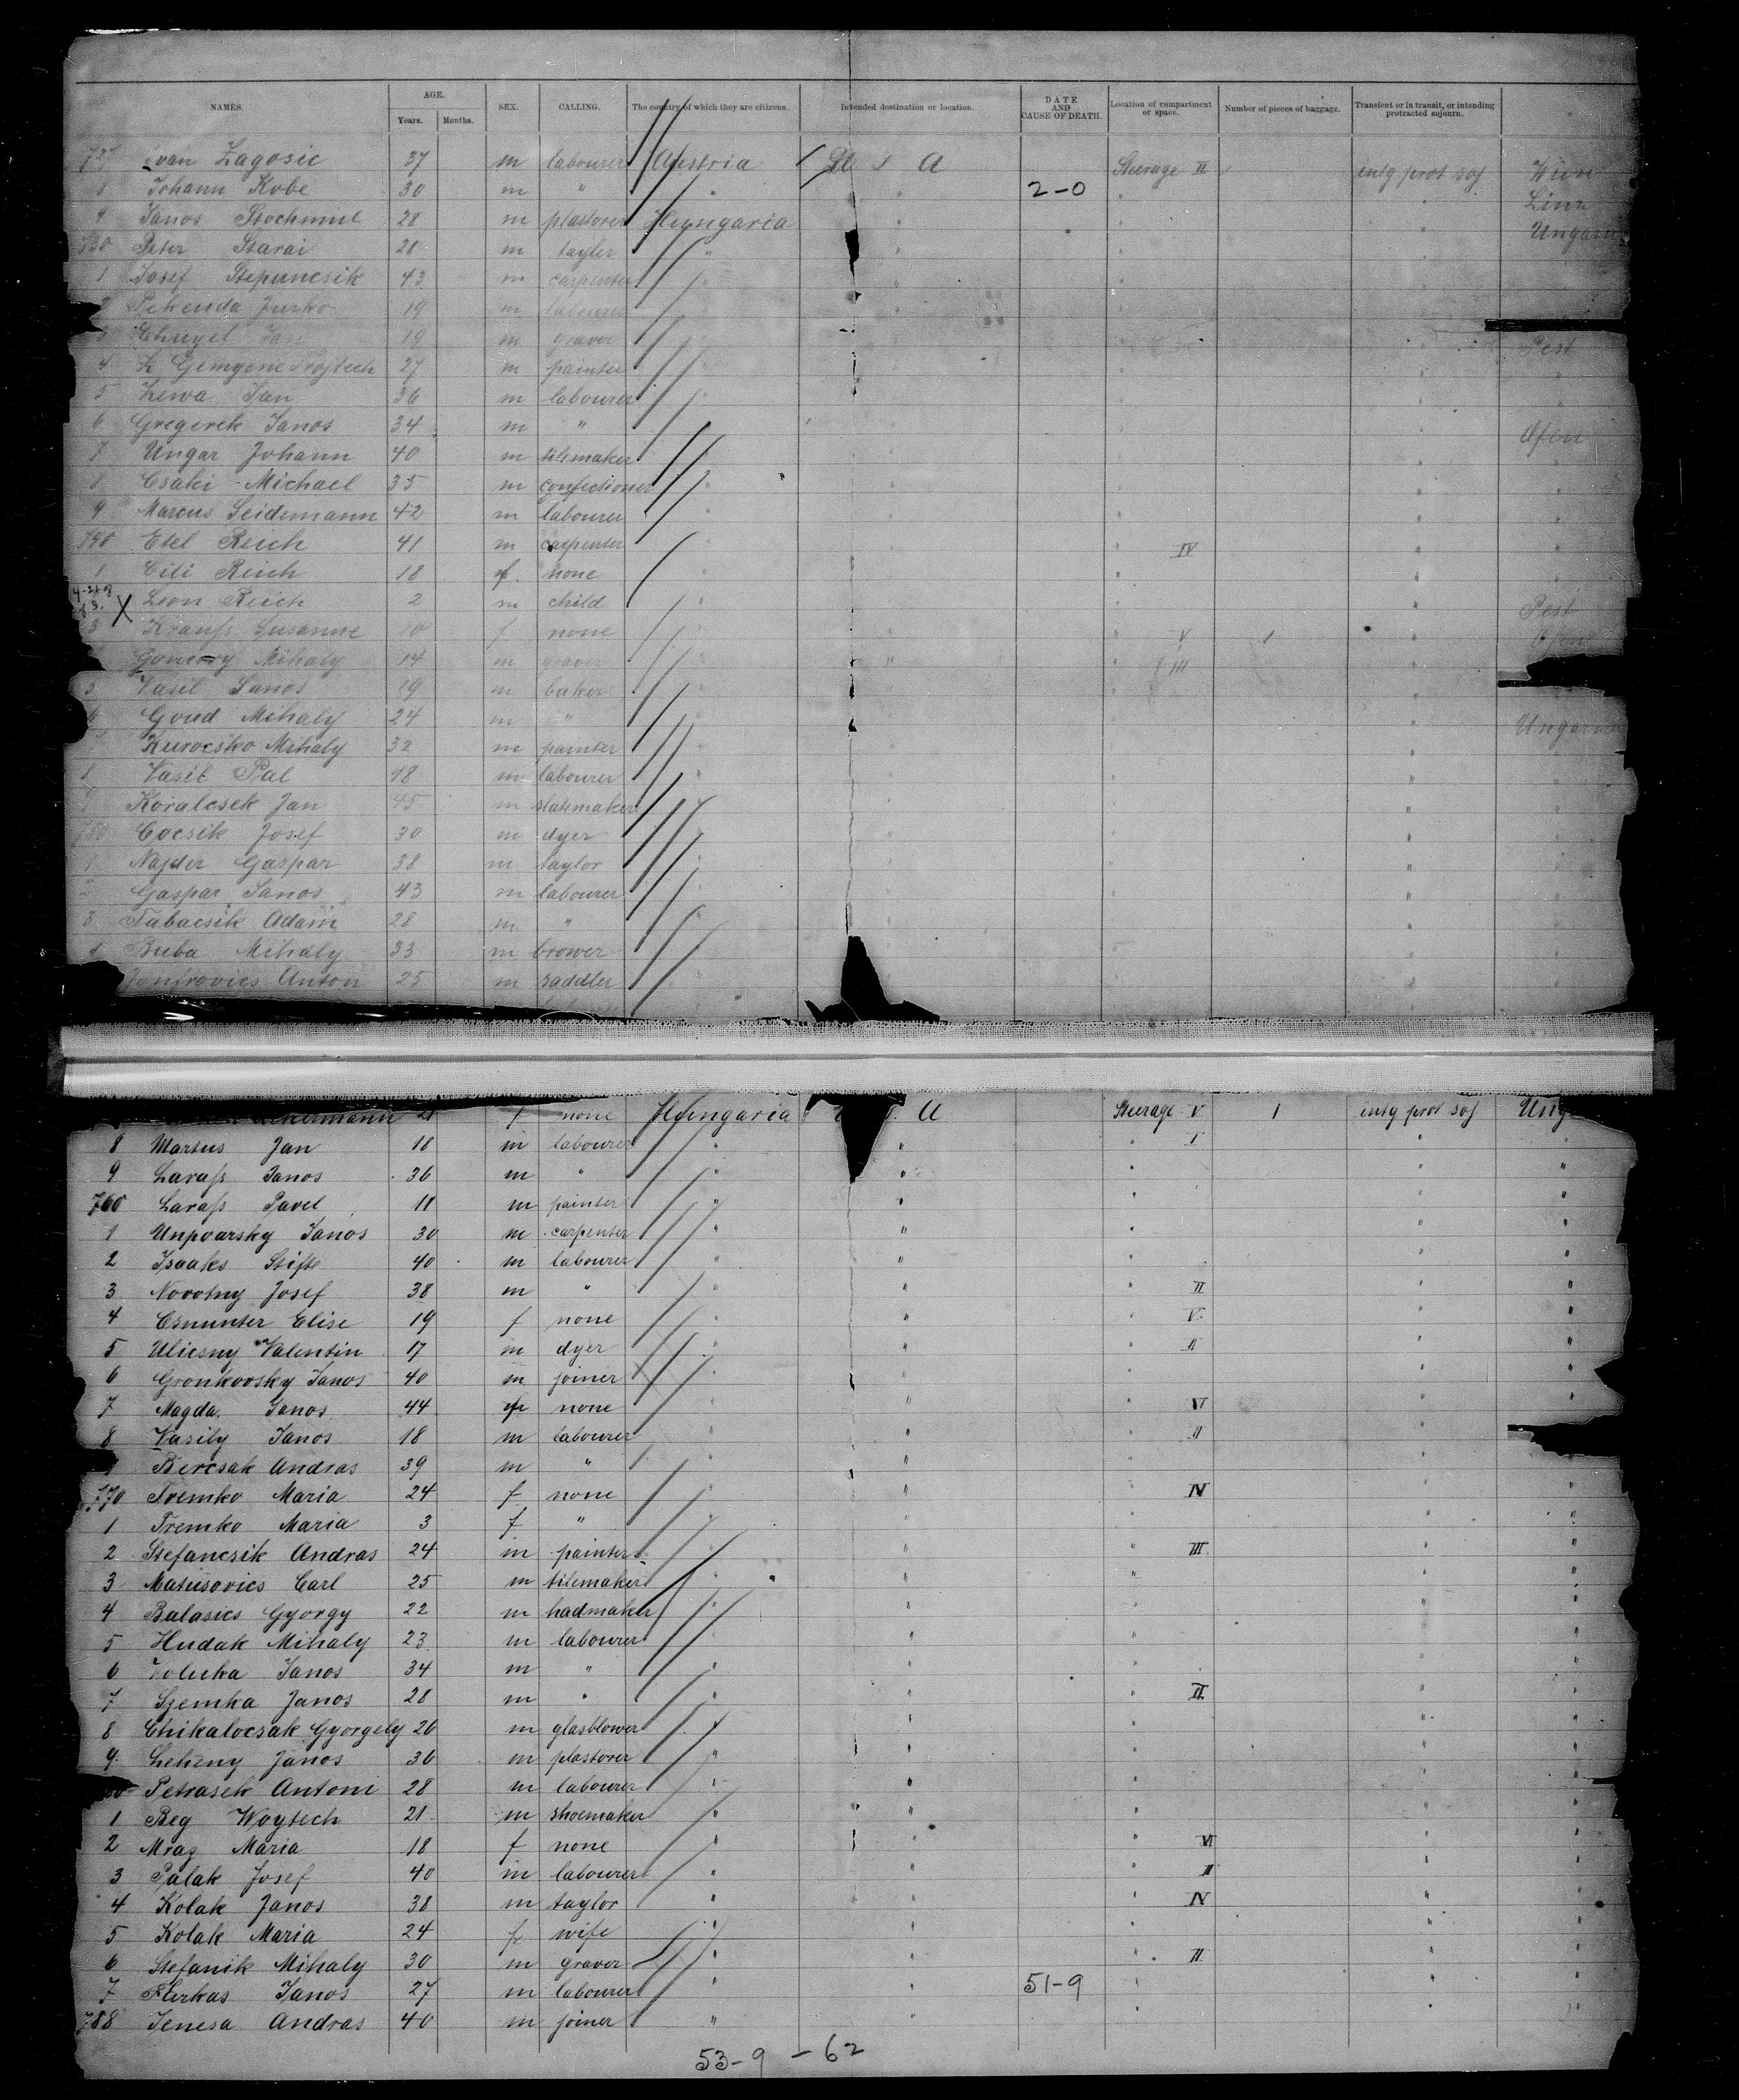 NAMES. AGE. Years. Months. SEX. CALLING. The country of which they are citizens. Intended destination or location. DATE AND CAUSE OF DEATH. Location of compartment or space. Number of pieces of baggage. Transient or in transit, or intending protracted sojourn.
727 Ivan Zagosic 37 m labourer Austria U S A Steerage II intg prot soj Wien
8 Johann Kobe 30 m " " " 2-0 " " Linz
9 Janos 28 m plastorer Hungaria " " " Ungarn
730 Peter Szarai 28 m tayler " " " "
1 Josef Stepuncsik 43 m carpenter " " " "
2 Pekenda Jurko 19 m labourer
3 Jan 19 m graver Pest
4 27 m painter " "
5 Lewa Jan 36 m labourer " "
6 Gregerek Janos 34 m " Ofen
7 Ungar Johann 40 m tilemaker " "
8 Csaki Michael 35 m confectioner " " "
9 Marcus Seidemann 42 m labourer " " "
740 Etel Reich 41 m carpenter " " IV " "
1 Cili Reich 18 f. none " " " "
4-2 X Leon Reich 2 m child " " Pest
3 Krauss Susanne 20 f none " " V 1 " Ofen
Mihaly 14 m graver " " " III "
5 Vasil Janos 19 m baker " " "
6 Goud Mihaly 24 m " Ungarn
7 Kurocsko Mihaly 32 m painter " " "
8 Vasil Pal 48 m labourer " " "
9 Koralcsek Jan 45 m slatemaker " " "
750 Cocsik Josef 30 m dyer " " " "
1 Najder Gaspar 38 m taylor " " "
2 Gaspar Janos 43 m labourer " "
3 Tabacsik Adam 28 m " " " "
4 Buba Mihaly 33 m brower " "
Anton 25 m saddler " " "
21 f none Hungaria A Steerage V 1 intg prot soj Ung
8 Martus Jan 18 m labourer " " " I "
9 Larass Janos 36 m " " " " " "
760 Larass Pavel 11 m painter " " " " "
1 Unpvarsky Janos 30 m carpenter " " " " "
2 Isaaks Stifte 40 m labourer " " " " "
3 Novotny Josef 38 m " " " " II " "
4 Csnunter Elise 19 f none " " " V " "
5 Uliesny Valentin 17 m dyer " " " II " "
6 Gronkovsky Janos 40 m joiner " " "
7 Magda Janos 44 f none " " " VI " "
8 Vasily Janos 18 m labourer " " " II "
9 Bercsak Andras 39 m " " " " "
770 Tremko Maria 24 f none " " " IV "
1 Tremko Maria 3 f " " " " "
2 Stefancsik Andras 24 m painter " " " III " "
3 Matusovics Carl 25 m tilemaker " " " " "
4 Balasics Gyorgy 22 m hadmaker " " " " "
5 Hudak Mihaly 23 m labourer " " " " "
6 Voluka Janos 34 m " " " " " "
7 Szemka Janos 28 m " " " " II " "
8 Chikalocsak Gyorgely 26 m glasblower " " " " "
9 Leheny Janos 36 m plastorer " " " " "
Petrasek Antoni 28 m labourer " " " " "
1 Beg Woytech 21 m shoemaker " " " " "
2 Mraz Maria 18 f none " " " VI " "
3 Palak Josef 40 m labourer " " " II " "
4 Kolak Janos 38 m taylor " " " IV " "
5 Kolak Maria 24 f wife " " " " "
6 Stefanik Mihaly 30 m graver " " " II " "
7 Janos 27 m labourer " " 51-9 " " "
788 Jenesa Andras 40 m joiner " " " "
53-9 - 62